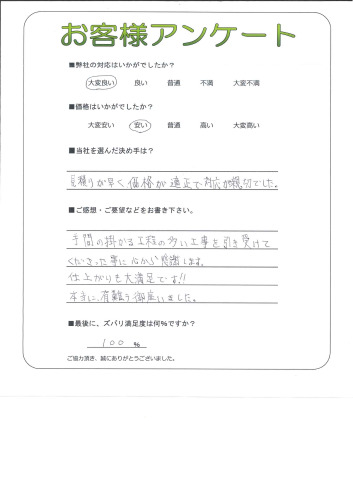 お客様アンケート
■弊社の対応はいかがでしたか?
大変良い 良い 普通 不満 大変不満
■価格はいかがでしたか?
大変安い 安い 普通 高い 大変高い
■当社を選んだ決め手は?
見積りが早く価格が適正で対応が親切でした。
■ご感想・ご要望などをお書き下さい。
手間の掛かる工程の多い工事を引き受けて
くださった事に心から感謝します。
仕上がりも大満足です!!
本当に、有難う御座いました。
■最後に、ズバリ満足度は何%ですか?
100 %
ご協力頂き、誠にありがとうございました。